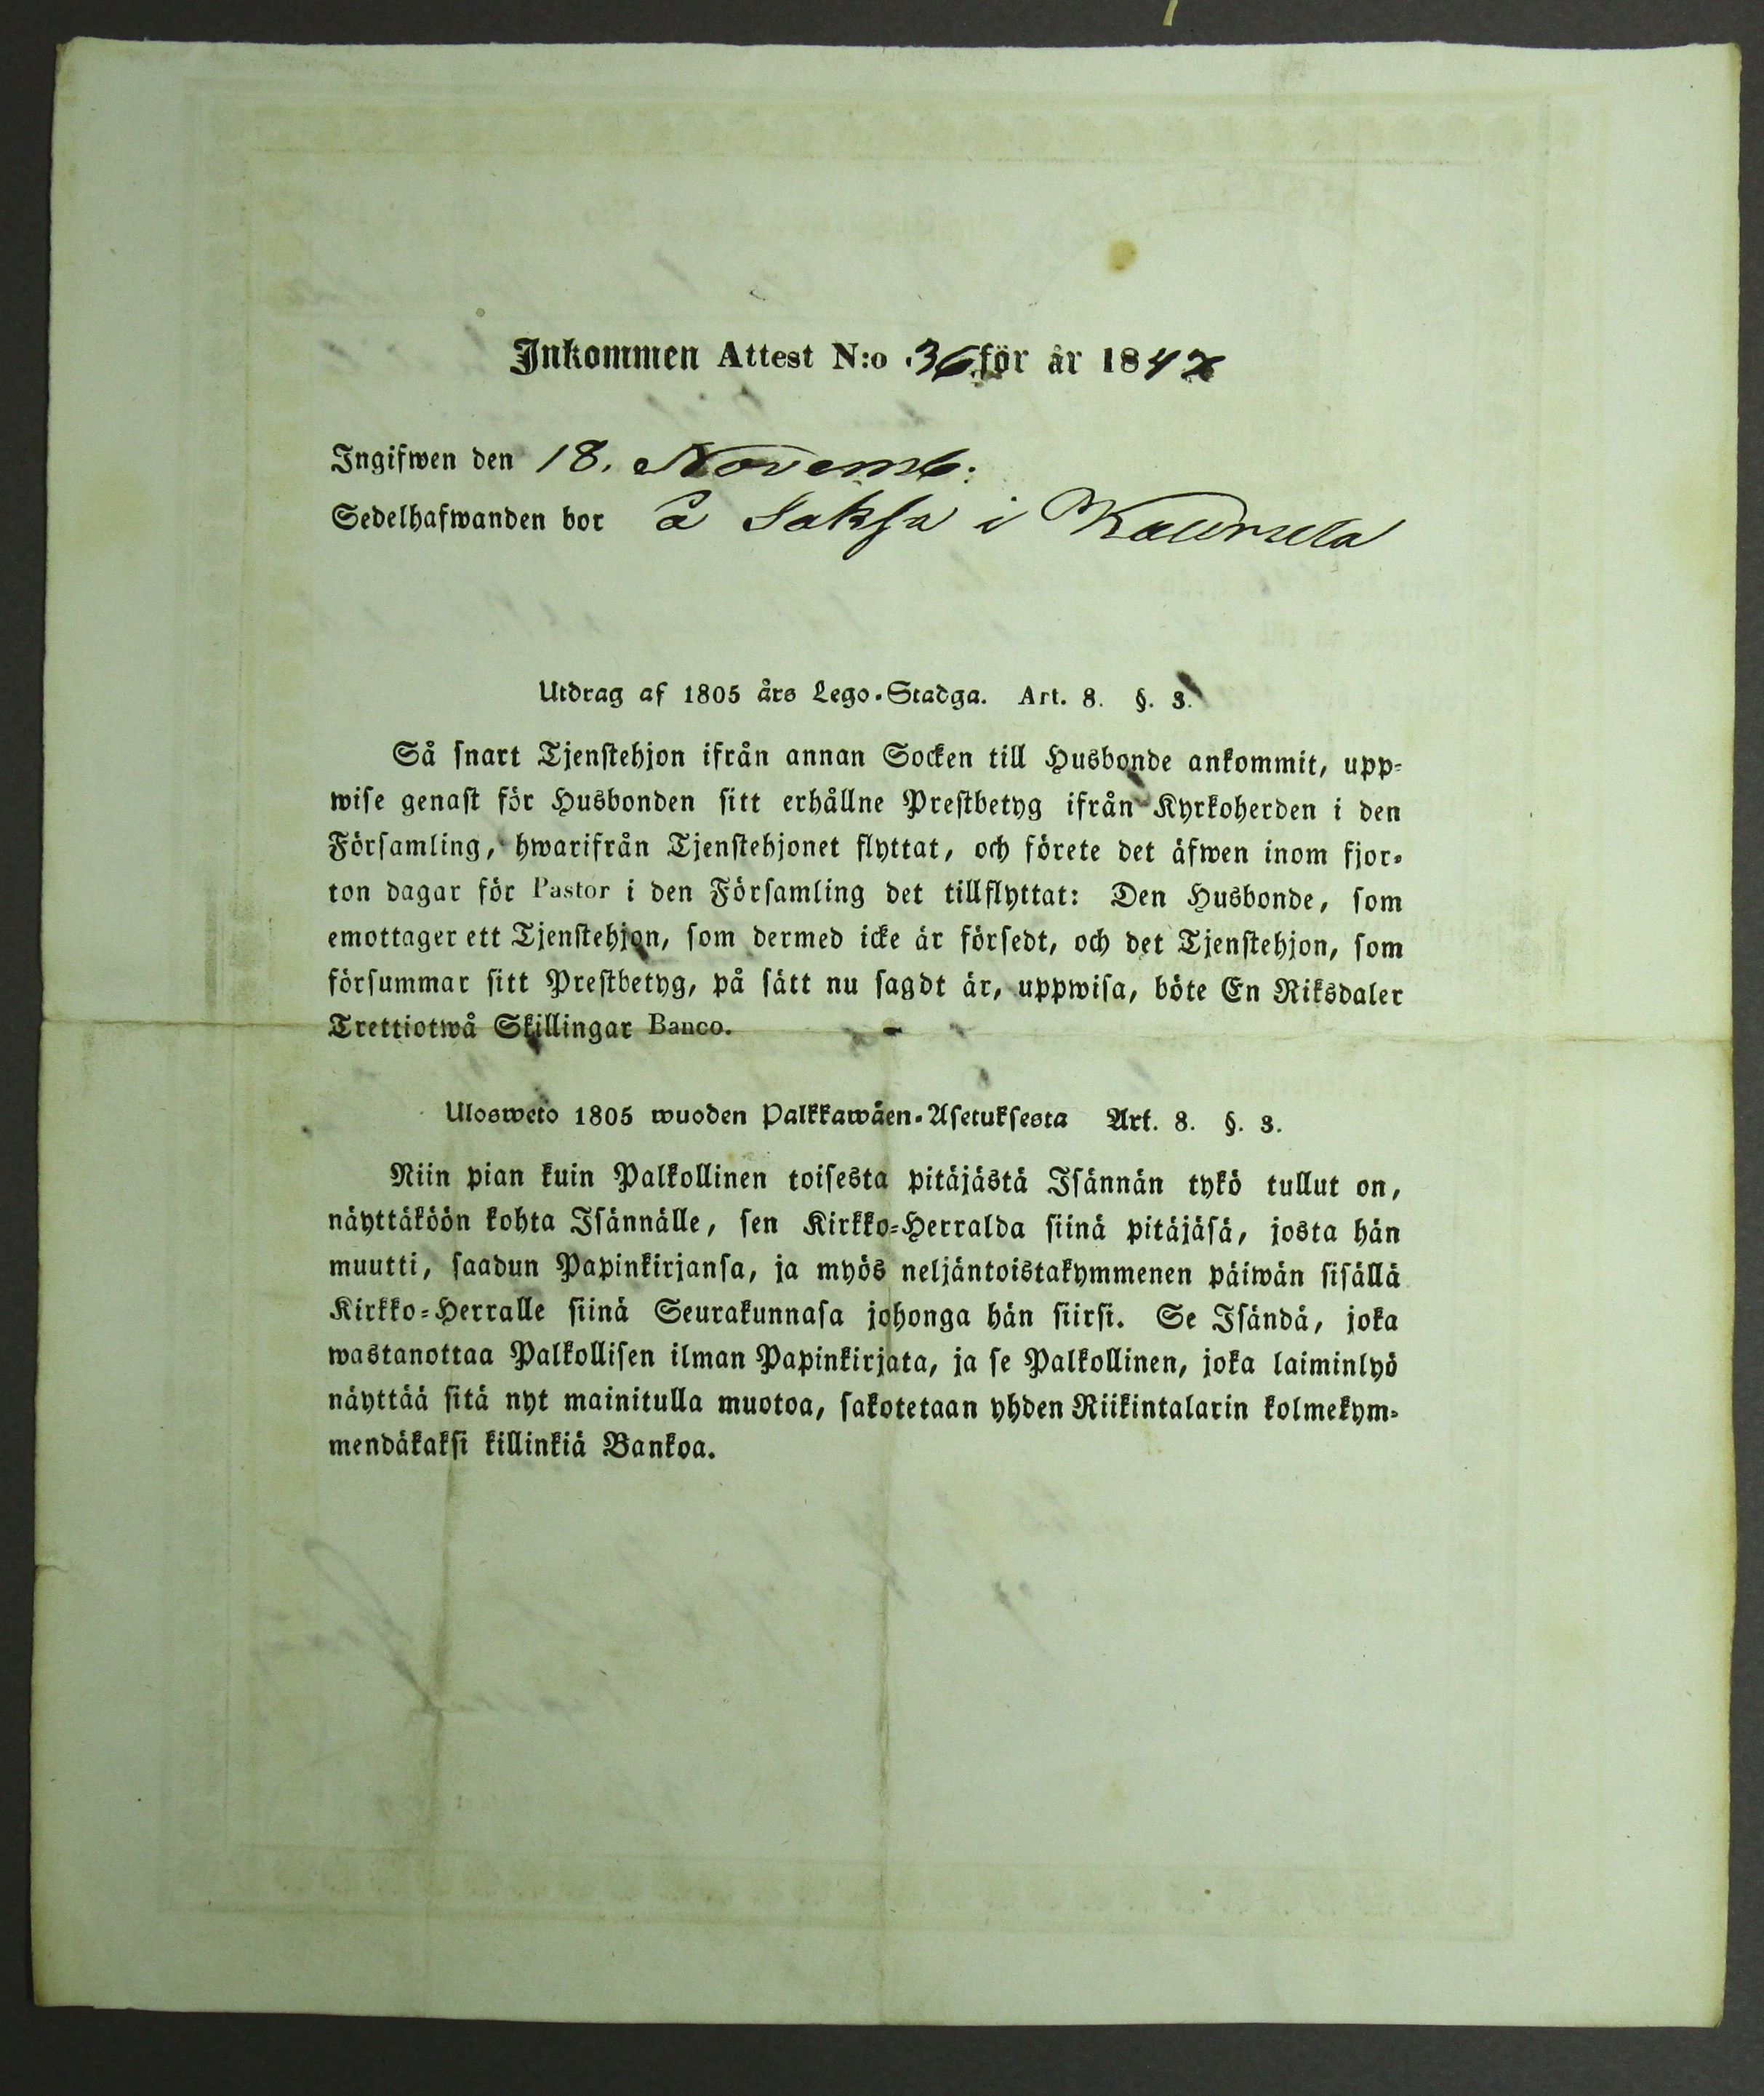 Inkommen Attest N:o 36 för år 1847
Ingifwen den 18. Novemb:
Sedelhafwanden bor å Saksa i Kaurula
Utdrag af 1805 års Lego-Stadga. Art. 8. §. 3.
Så snart Tjenstehjon ifrån annan Socken till Husbonde ankommit, upp-
wise genast för Husbonden sitt erhållne Prestbetyg ifrån Kyrkoherden i den
Församling, hwarifrån Tjenstehjonet flyttat, och förete det äfwen inom fjor-
ton dagar för Pastor i den Församling det tillflyttat: Den Husbonde, som
emottager ett Tjenstehjon, som dermed icke är försedt, och det Tjenstehjon, som
försummar sitt Prestbetyg, på sätt nu sagdt är, uppwisa, böte En Riksdaler
Trettiotwå Skillingar Banco.
Ulosweto 1805 wuoden Palkkawäen-Asetuksesta Art. 8. §. 3.
Niin pian kuin Palkollinen toisesta pitäjästä Isännän tykö tullut on,
näyttäköön kohta Isännälle, sen Kirkko-Herralda siinä pitäjäsä, josta hän
muutti, saadun Papinkirjansa, ja myös neljäntoistakymmenen päiwän sisällä
Kirkko-Herralle siinä Seurakunnasa johonga hän siirsi. Se Isändä, joka
wastanottaa Palkollisen ilman Papinkirjata, ja se Palkollinen, joka laiminlyö
näyttää sitä nyt mainitulla muotoa, sakotetaan yhden Riikintalarin kolmekym-
mendäkaksi killinkiä Bankoa.